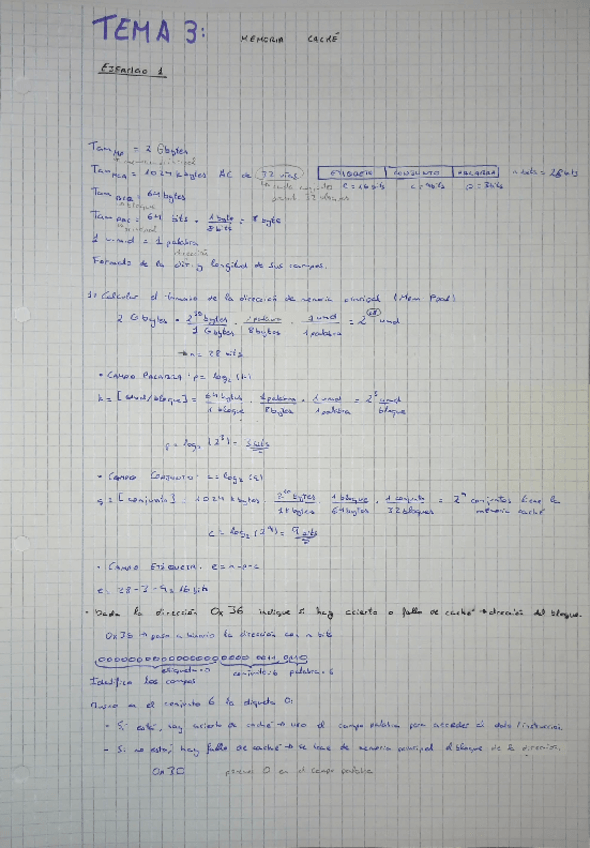 TEMA 3: MEMORIA CACHÉ
EJERCICIO 1
Tam MP = 2 Gbytes
memoria principal
Tam MCA = 1024 kbytes AC de 32 vías ETIQUETA CONJUNTO PALABRA n bits = 28 bits
cada conjunto e = 16 bits c = 9 bits p = 3 bits
Tam BLQ = 64 bytes
bloque
Tam PAL = 64 bits · 1 byte / 8 bits = 8 bytes
1 umd = 1 palabra
dirección
Formato de la dir. y longitud de sus campos.
1º Calcular el tamaño de la dirección de memoria principal (Mem Ppal)
2 Gbytes · 2^30 bytes / 1 Gbytes · 1 palabra / 8 bytes · 1 umd / 1 palabra = 2^28 umd
→ n = 28 bits
• CAMPO PALABRA: p = log₂ (k)
k = [umd/bloque] = 64 bytes / 1 bloque · 1 palabra / 8 bytes · 1 umd / 1 palabra = 2^3 umd / bloque
p = log₂ (2^3) = 3 bits
• CAMPO CONJUNTO: c = log₂ (q)
q = [conjunto] : 1024 kbytes · 2^10 bytes / 1 kbytes · 1 bloque / 64 bytes · 1 conjunto / 32 bloques = 2^9 conjuntos tiene la memoria caché
c = log₂ (2^9) = 9 bits
• CAMPO ETIQUETA: e = n-p-c
e = 28 - 3 - 9 = 16 bits
• Dada la dirección 0x36 indique si hay acierto o fallo de caché → dirección del bloque.
0x36 → paso a binario la dirección con n bits
0000000000000000000000 0011 0110
etiqueta = 0 conjunto: 6 palabra = 6
Identifica los campos
Busco en el conjunto 6 la etiqueta 0:
• Si está, hay acierto de caché → uso el campo palabra para acceder al dato/instrucción
• Si no está, hay fallo de caché → se trae de memoria principal el bloque de la dirección.
0x30 0 en el campo palabra